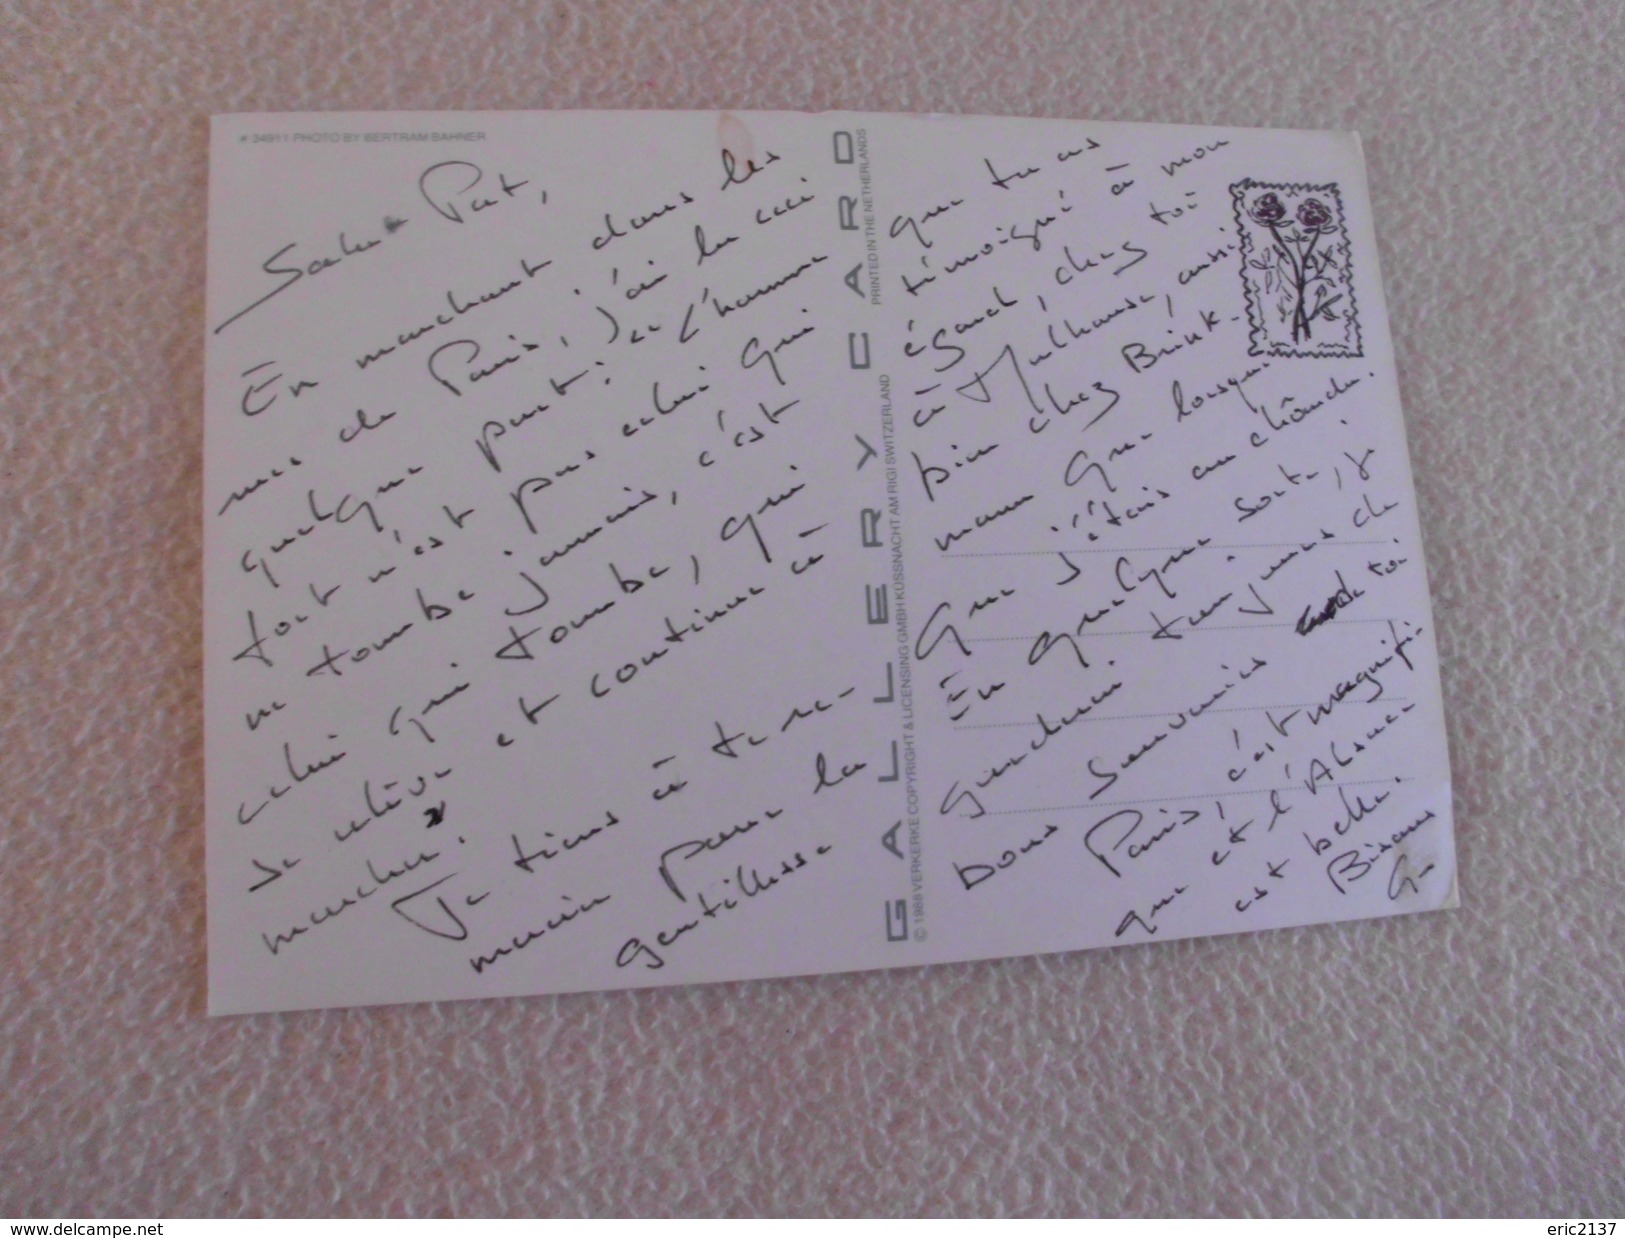 # 34911 PHOTO BY BERTRAM BAHNER
Salut Pat,
En marchant dans les
rues de Paris, j'ai lu ceci
quelque part : "L'homme
fort n'est pas celui qui
ne tombe jamais, c'est
celui qui tombe, qui
se relève et continue à
marcher".
Je tiens à te re-
mercier pour la
gentillesse
GALLERY CARD
© 1988 VERKERKE COPYRIGHT & LICENSING GMBH KÜSSNACHT AM RIGI SWITZERLAND
PRINTED IN THE NETHERLANDS
que tu as
témoigné à mon
égard, chez toi
à Mulhouse, aussi
bien chez Brink-
mann que lorsque
que j'étais au chômdu.
En quelque sorte, je
garderai toujours de
bons souvenirs de toi
Paris, c'est magnifi-
que et l'Alsace
est belle.
Bisous
G
www.delcampe.net
eric2137